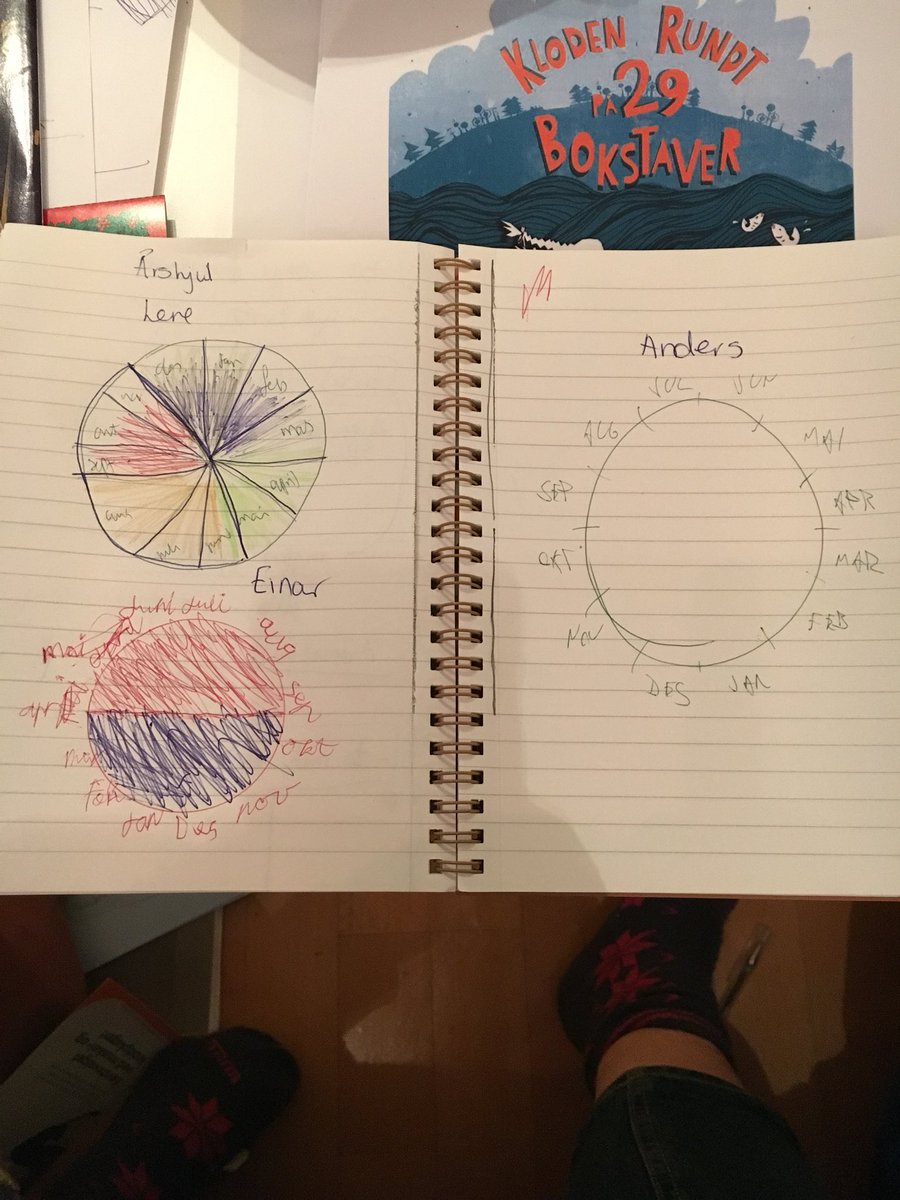 KLODEN RUNDT
PÅ 29
BOKSTAVER
Årshjul
Lene
des
jan
feb
mars
april
mai
juni
juli
aug
sept
Einar
Juni Juli
aug
mai
apr
okt
nov
Des
Jan
Anders
JUL
JUN
MAI
APR
MAR
FEB
JAN
DES
NOV
OKT
SEP
AUG